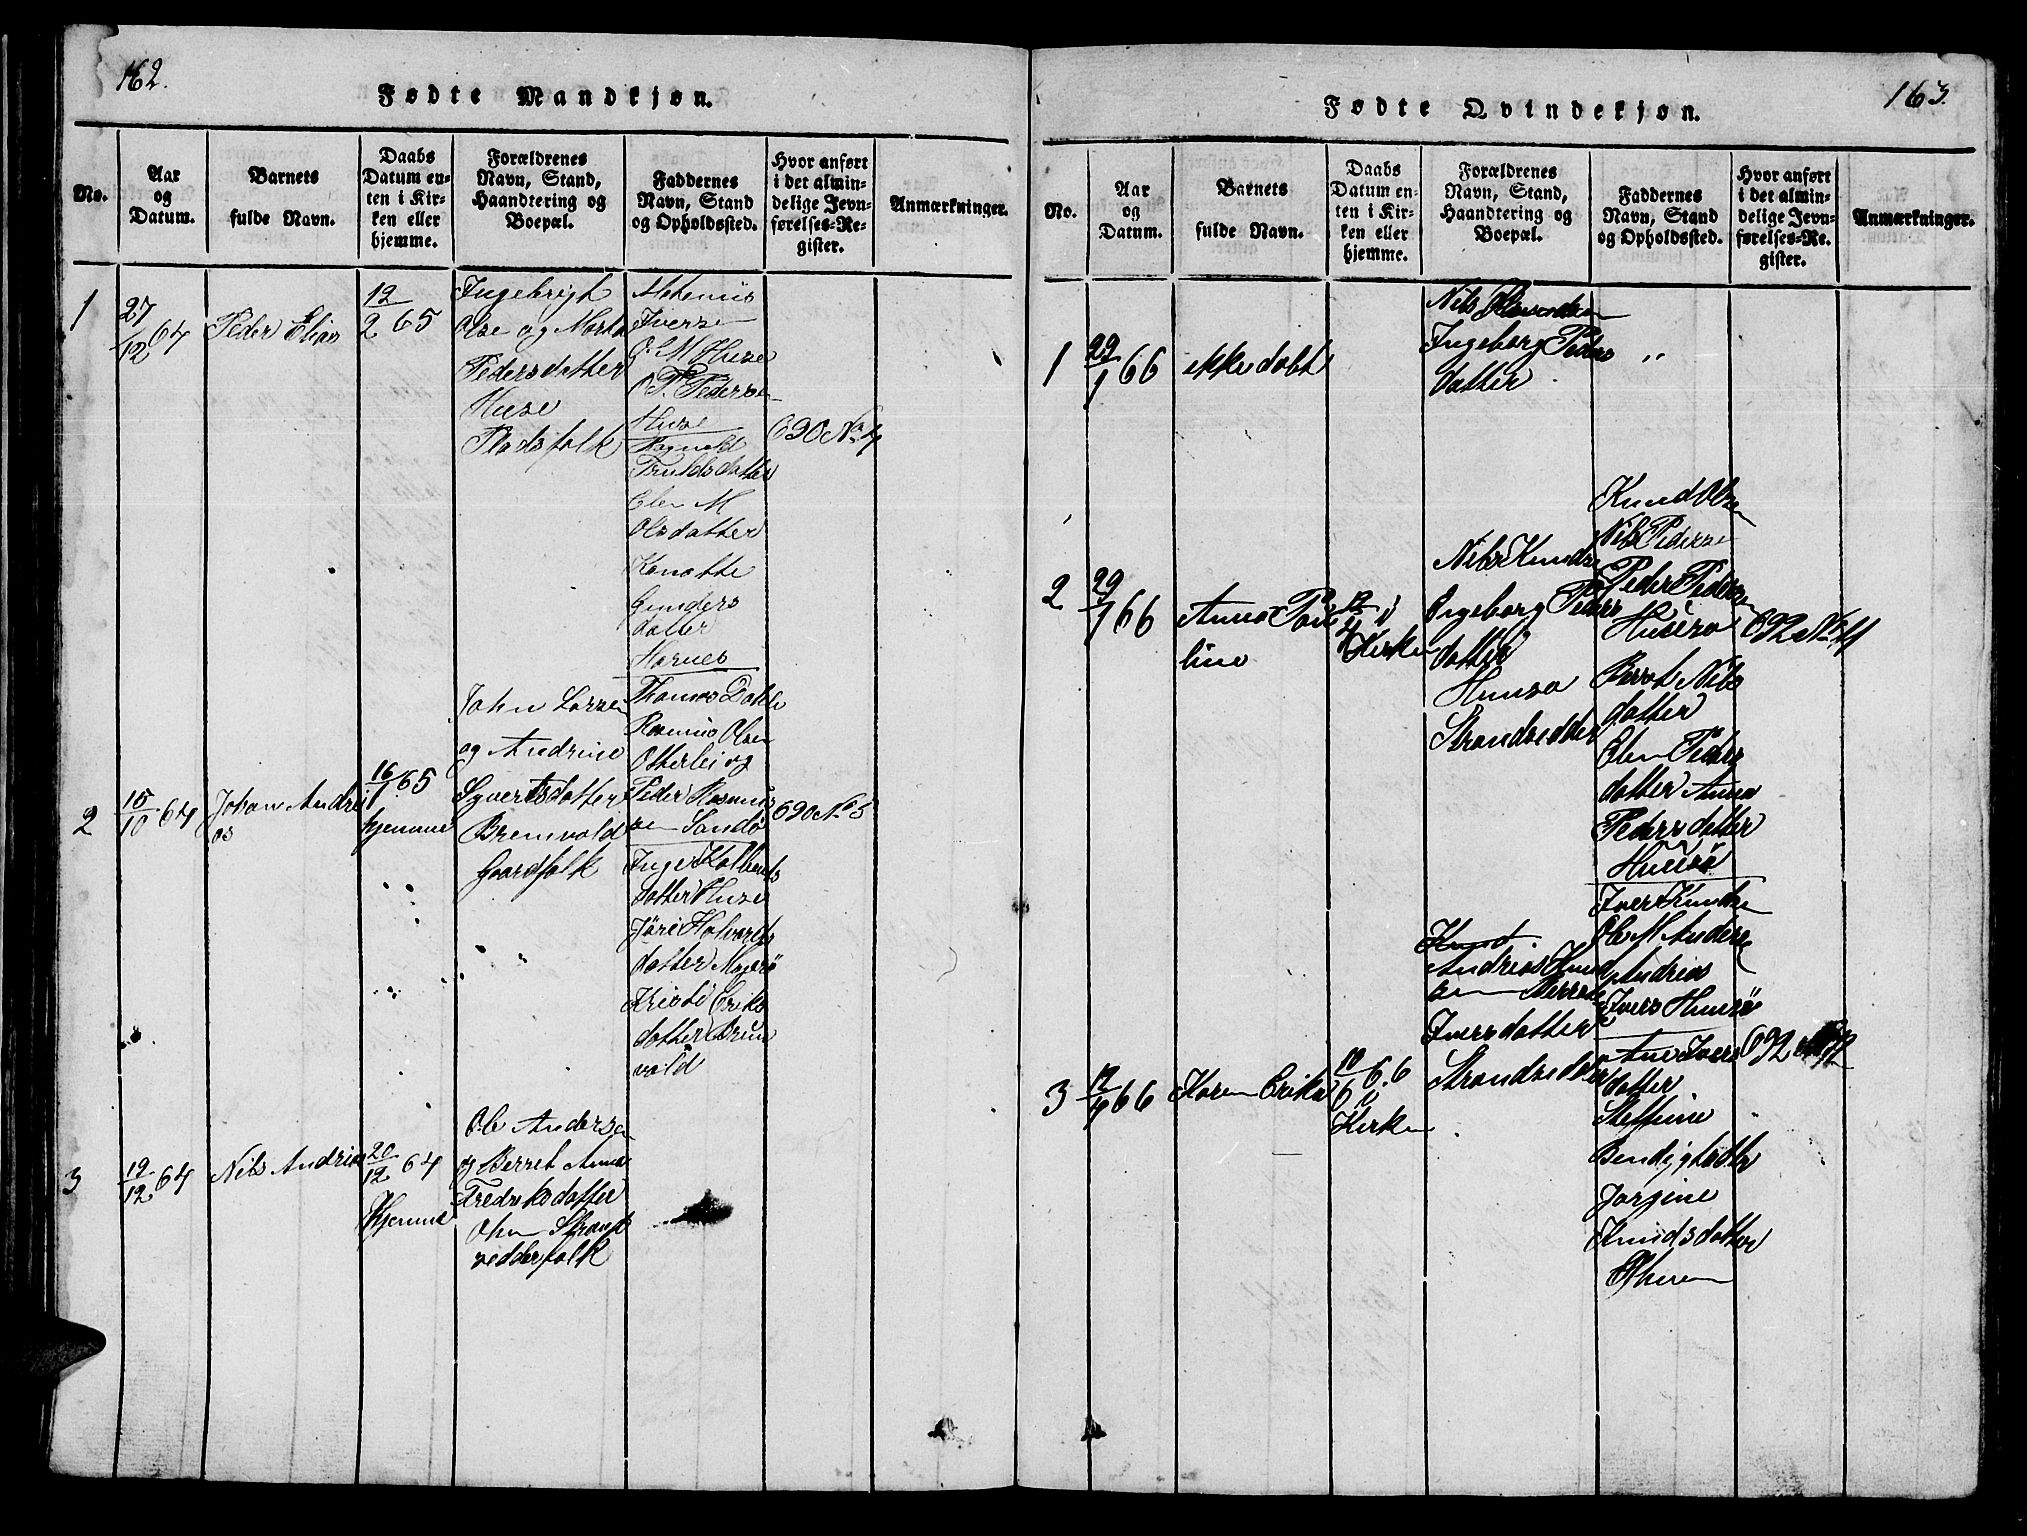 162.
Fødte Mandkjøn.
No.
Aar
og
Datum.
Barnets
fulde Navn.
Daabs
Datum en-
ten i Kir-
ken eller
hjemme.
Forældrenes
Navn, Stand,
Haandtering og
Boepæl.
Faddernes
Navn, Stand
og Opholdssted.
Hvor anført
i det almin-
delige Jevn-
førelses-Re-
gister.
Anmærkninger.
1
27
12 64
Peder Elias
12
2 65
Ingebrigt
Olse og Marta
Pedersdatter
Huse
Pladsfolk
Iverse
O. M Huse
O P. Pedersen
Huse
Ragnild
Truldsdatter
Elen M
Olsdatter
Gunders
datter
Harnes
690 No 4
2
15
10 64
Johan Andre
as
16
1 65
hjemme
John Larsen
og Andrine
Syvertsdatter
Bremvold
Gaardfolk
Thomas
Rasmus Olsen
Otterlei og
Peder Rasmus
sen Sandø
Inge
datter Huse
Jöri Halvords
datter Majerö
Kristi Eriks
datter Brem
vold
690 No 5
3
19
12 64
Nils Andreas
20
12 64
Hjemme
Ole Andersen
og Berret Anna
Fredriksdatter
Ohn Strand
sedderfolk
163.
Fødte Qvindekjøn.
No.
Aar
og
Datum.
Barnets
fulde Navn.
Daabs
Datum en-
ten i Kir-
ken eller
hjemme.
Forældrenes
Navn, Stand,
Haandtering og
Boepæl.
Faddernes
Navn, Stand
og Opholdssted.
Hvor anført
i det almin-
delige Jevn-
førelses-Re-
gister.
Anmærkninger.
1
29
1 66
ikke dobt
Nils
Ingeborg Peders
datter
"
2
29
1 66
Anna Pou
line
12
4 i
Kirken
Nils Knudse
Ingeborg Peders
datter
Hunsø
Strandsedder
Knud Olsen
Nils Pederse
Peder Pedersen
Huserø
Berret Nils
datter
Elen Peders
datter Anna
Pedersdatter
Husrö
692 No 11
3
12
4 66
Karen Erika
10
6 66
i
Kirken
Knud
Andreas Knud
sen Berret
Iversdatter
Strandsedder
Iver Knudsen
Ole M Anderse
Andreas
Ivers Husrö
Ane Ivers
datter
Steffine
Bendigtsdtr
Jorgine
Knudsdatter
Oheren
692 12